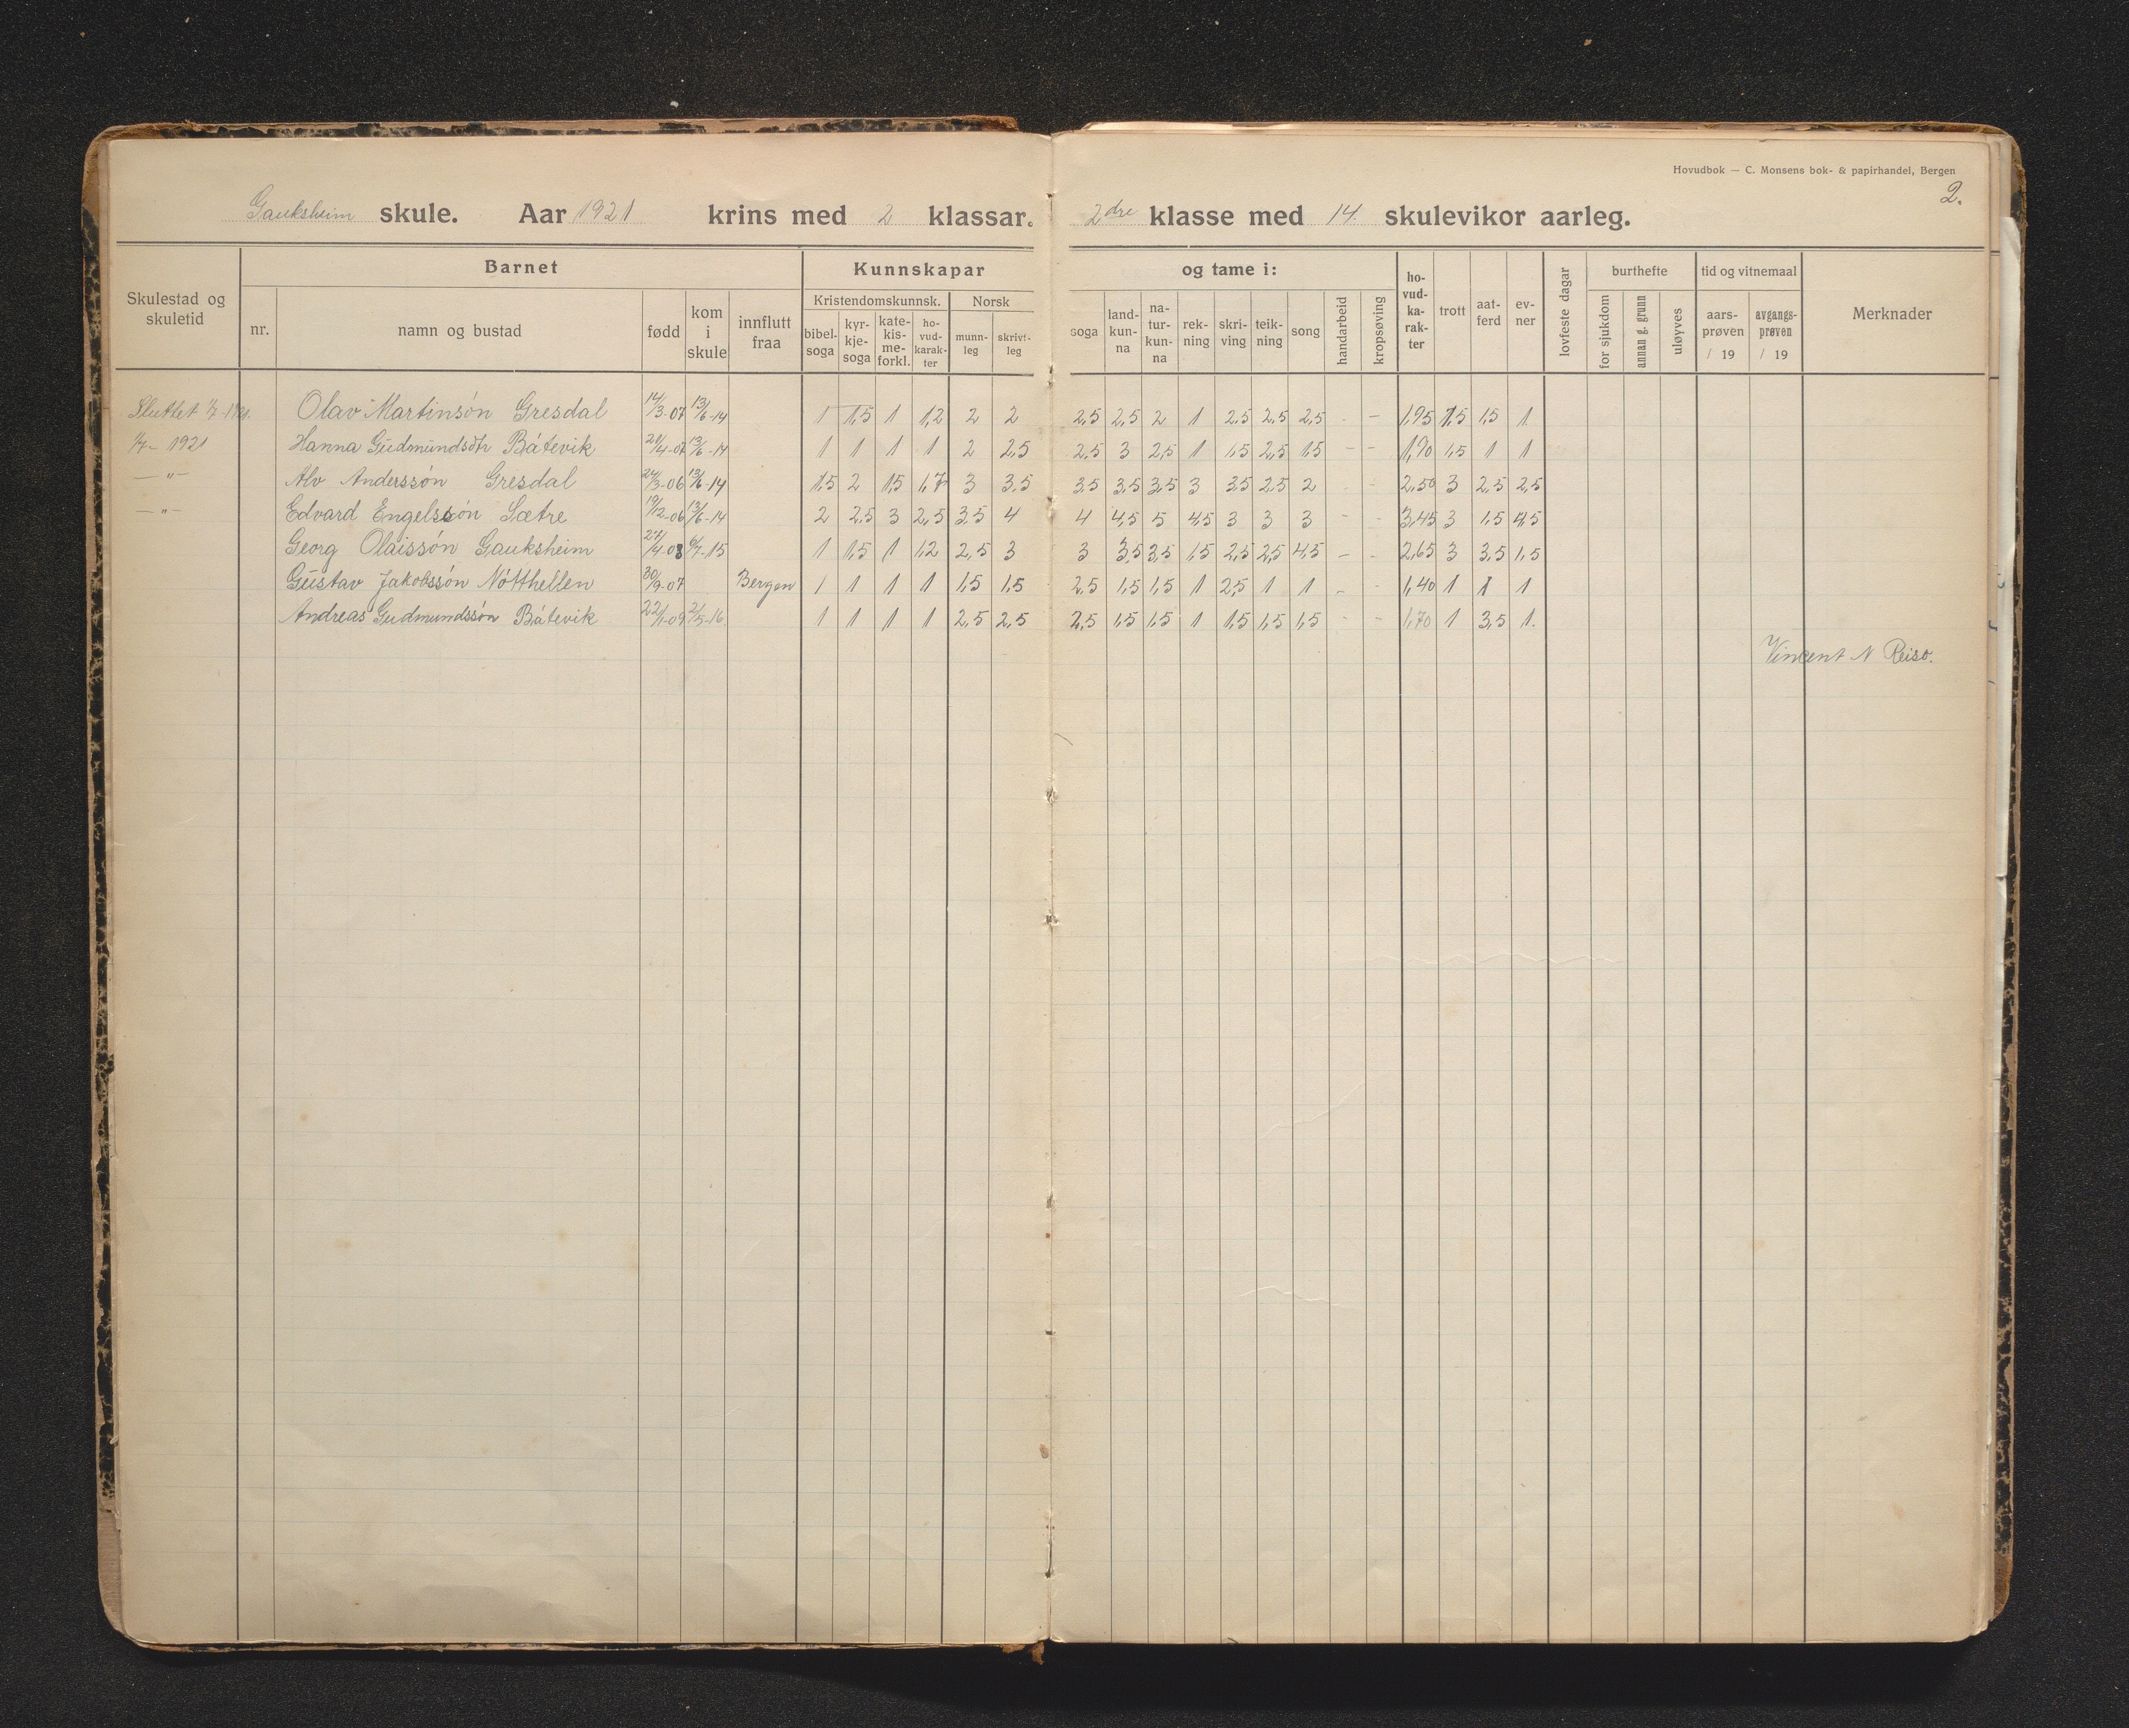 Hovudbok — C. Monsens bok- & papirhandel, Bergen
2.
Gauksheim skule. Aar 1921 krins med 2 klassar. 2dre klasse med 14. skulevikor aarleg.
Skulestad og skuletid
Barnet
nr. namn og bustad født kom i skule innflutt fraa
Kunnskapar og tame i:
Kristendomskunnsk. Norsk
bibel-soga kyr-kje-soga kate-kis-me-forkl. ho-vud-karak-ter munn-leg skrivt-leg
soga land-kun-na na-tur-kun-na rek-ning skri-ving teik-ning song handarbeid kropsøving
ho-vud-ka-rak-ter trott aat-ferd ev-ner lovfeste dagar
burthefte
for sjukdom annan g. grunn uløyves
tid og vitnemaal
aars-prøven / 19 avgangs-prøven / 19
Merknader
Sluttet 1/7-1921. Olav Martinsón Gresdal 14/3-07 13/6-14 1 1,5 1 1,2 2 2 2,5 2,5 2 1 2,5 2,5 2,5 - - 1,95 1,5 1,5 1
1/7- 1921 Hanna Gudmundsdtr Båtevik 21/4-07 13/6-14 1 1 1 1 2 2,5 2,5 3 2,5 1 1,5 2,5 1,5 - - 1,90 1,5 1 1
—"— Alv Anderssón Gresdal 24/3-06 13/6-14 1,5 2 1,5 1,7 3 3,5 3,5 3,5 3,5 3 3,5 2,5 2 - - 2,50 3 2,5 2,5
—"— Edvard Engelssón Sætre 19/12-06 13/6-14 2 2,5 3 2,5 3,5 4 4 4,5 5 4,5 3 3 3 - - 3,45 3 1,5 4,5
Georg Olaissón Gauksheim 27/4-08 6/7-15 1 1,5 1 1,2 2,5 3 3 3,5 3,5 1,5 2,5 2,5 4,5 - - 2,65 3 3,5 1,5
Gustav Jakobssón Nótthellen 30/9-07 Bergen 1 1 1 1 1,5 1,5 2,5 1,5 1,5 1 2,5 1 1 - - 1,40 1 1 1
Andreas Gudmundssón Båtevik 22/1-09 2/5-16. 1 1 1 1 2,5 2,5 2,5 1,5 1,5 1 1,5 1,5 1,5 - - 1,70 1 3,5 1.
Vincent N Reiso.